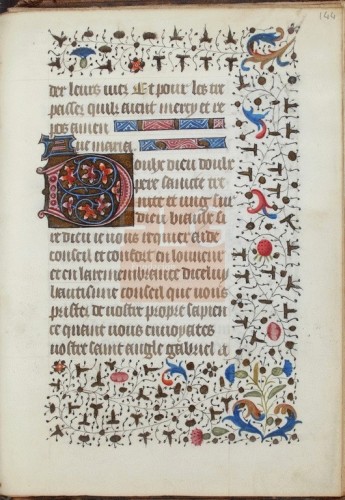 144
der leurs vies Et pour les tres
passez quilz aient mercy et re
pos amen
Aue maria
Doulx dieu doulx
pere saincte tri
nite et ung seul
dieu biausire si
re dieu ie vous requier aide
conseil et confort en lonneur
et en la remembrance dicelui
hautisme conseil que vous
pristes de vostre propre sapien
ce quant vous enuoyastes
vostre saint angle gabriel a